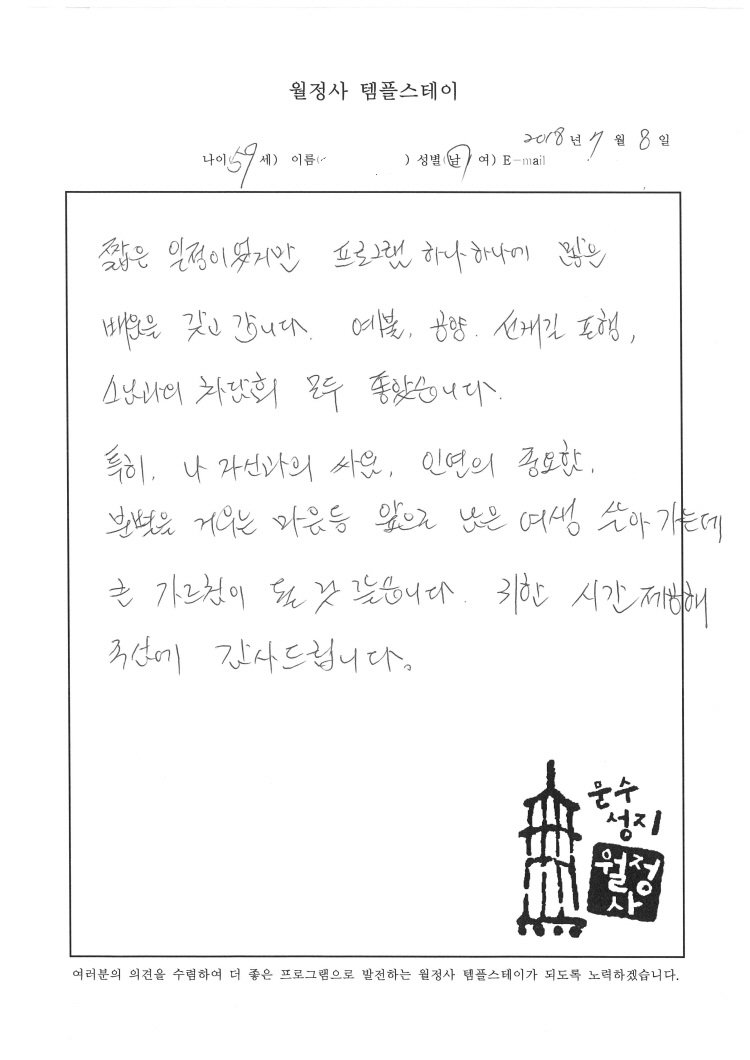 월정사 템플스테이
2018년 7월 8일
나이(59세) 이름( ) 성별(남, 여) E-mail
짧은 일정이었지만 프로그램 하나하나에 많은
배움을 갖고 갑니다. 예불, 공양. 선재길 포행,
스님과의 차담회 모두 좋았습니다.
특히, 나 자신과의 싸움, 인연의 중요함,
분별을 지우는 마음등 앞으로 남은 여생 살아 가는데
큰 가르침이 될 것 같습니다. 귀한 시간 제공해
주심에 감사드립니다.
문수
성지
월정
사
여러분의 의견을 수렴하여 더 좋은 프로그램으로 발전하는 월정사 템플스테이가 되도록 노력하겠습니다.